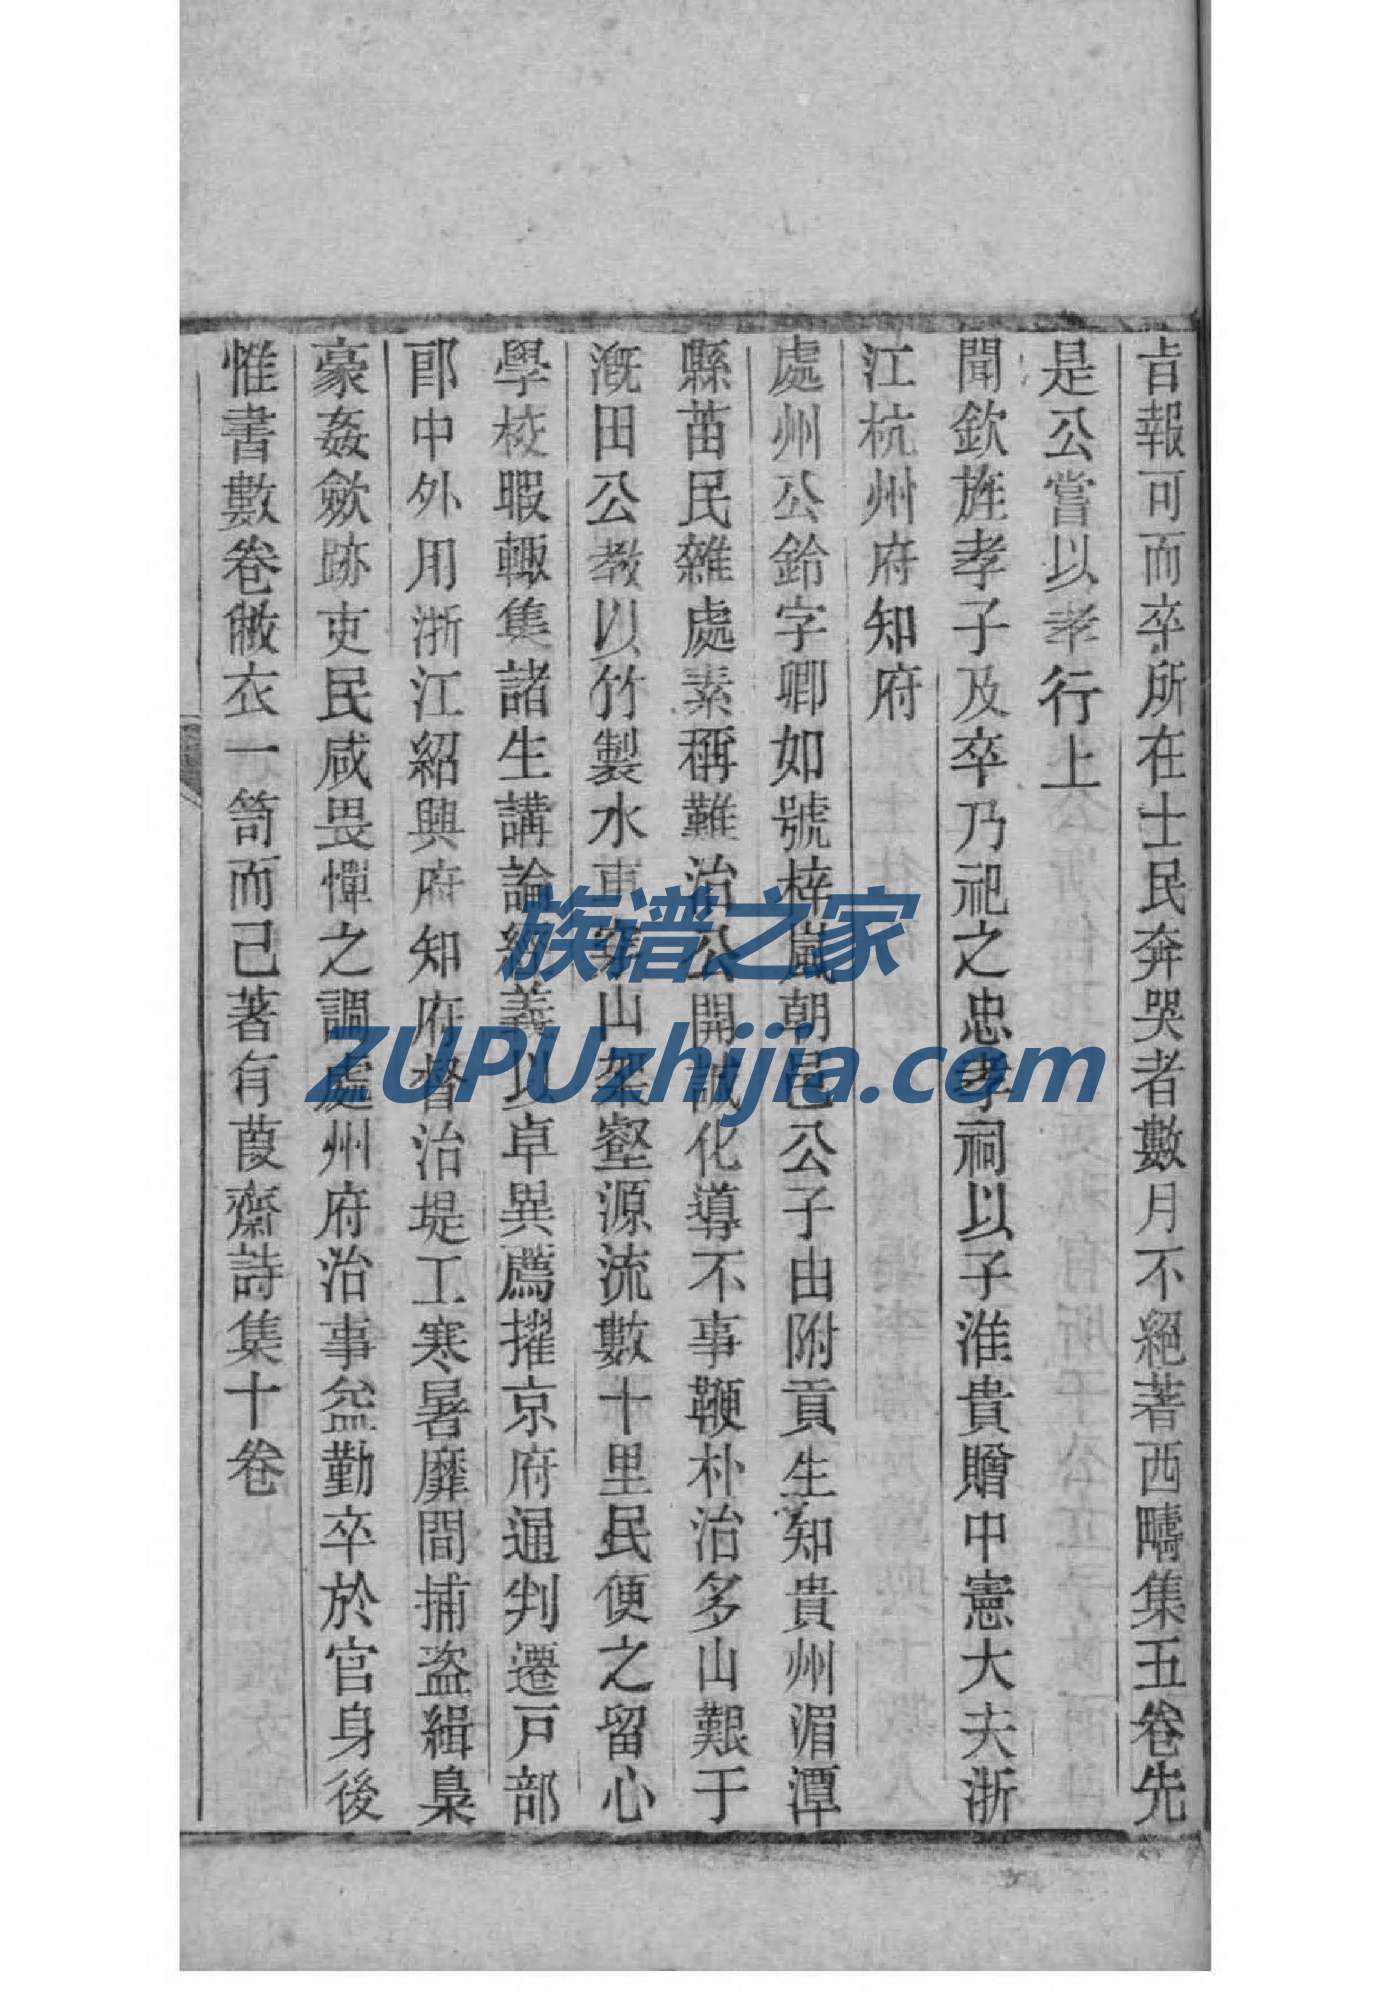 旨報可而卒所在士民奔哭者數月不絕著西疇集五卷先
是公嘗以孝行上
聞欽旌孝子及卒乃祀之忠孝祠以子淮貴贈中憲大夫浙
江杭州府知府
處州公鈴字卿如號梓嵐朝邑公子由附貢生知貴州湄潭
縣苗民雜處素稱難治公開誠化導不事鞭朴治多山艱于
漑田公教以竹製水車穿山架壑源流數十里民便之留心
學校暇輙集諸生講論經義以卓異薦擢京府通判遷戸部
郎中外用浙江紹興府知府督治堤工寒暑靡間捕盜緝梟
豪姦歛跡吏民咸畏憚之調處州府治事益勤卒於官身後
惟書數卷敝衣一笥而己著有葭齋詩集十卷
族谱之家
ZUPUzhijia.com